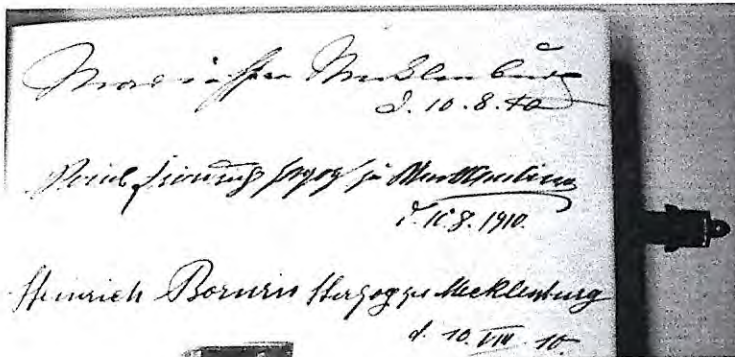 Marie Mecklenburg
d. 10.8.10
Paul Friedrich Herzog zu Mecklenburg
d. 10.8.1910.
Heinrich Borwin Herzog zu Mecklenburg
d. 10. VIII. 10